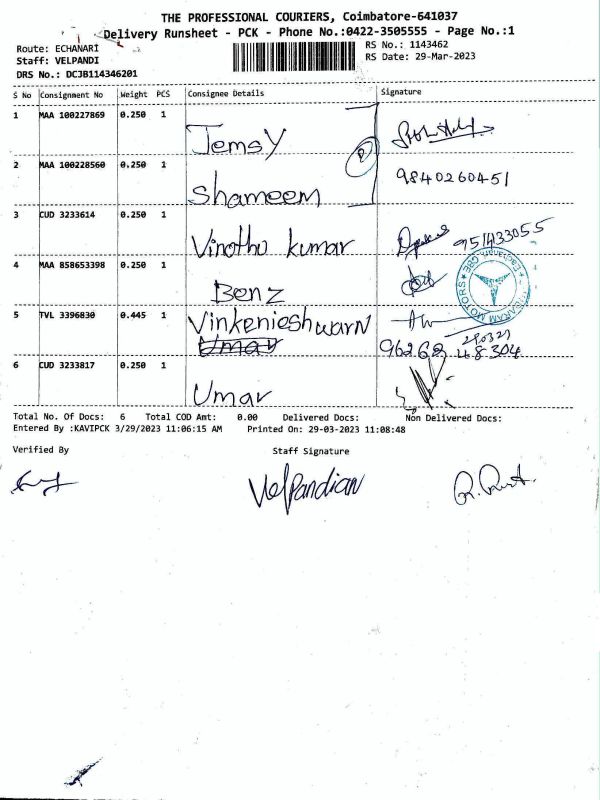 THE PROFESSIONAL COURIERS, Coimbatore-641037
Delivery Runsheet - PCK - Phone No.:0422-3505555 - Page No.:1
Route: ECHANARI
RS No.: 1143462
Staff: VELPANDI
RS Date: 29-Mar-2023
DRS No.: DCJB114346201
S No Consignment No Weight PCS Consignee Details Signature
1 MAA 100227869 0.250 1
Jemsy
2 MAA 100228560 0.250 1
9840260451
Shameem
3 CUD 3233614 0.250 1
Vinothu kumar
4 MAA 858653398 0.250 1
Benz
5 TVL 3396830 0.445 1
Umar
48304
6 CUD 3233817 0.250 1
Umar
Total No. Of Docs: 6 Total COD Amt: 0.00 Delivered Docs: Non Delivered Docs:
Entered By :KAVIPCK 3/29/2023 11:06:15 AM Printed On: 29-03-2023 11:08:48
Verified By Staff Signature
VelPandian